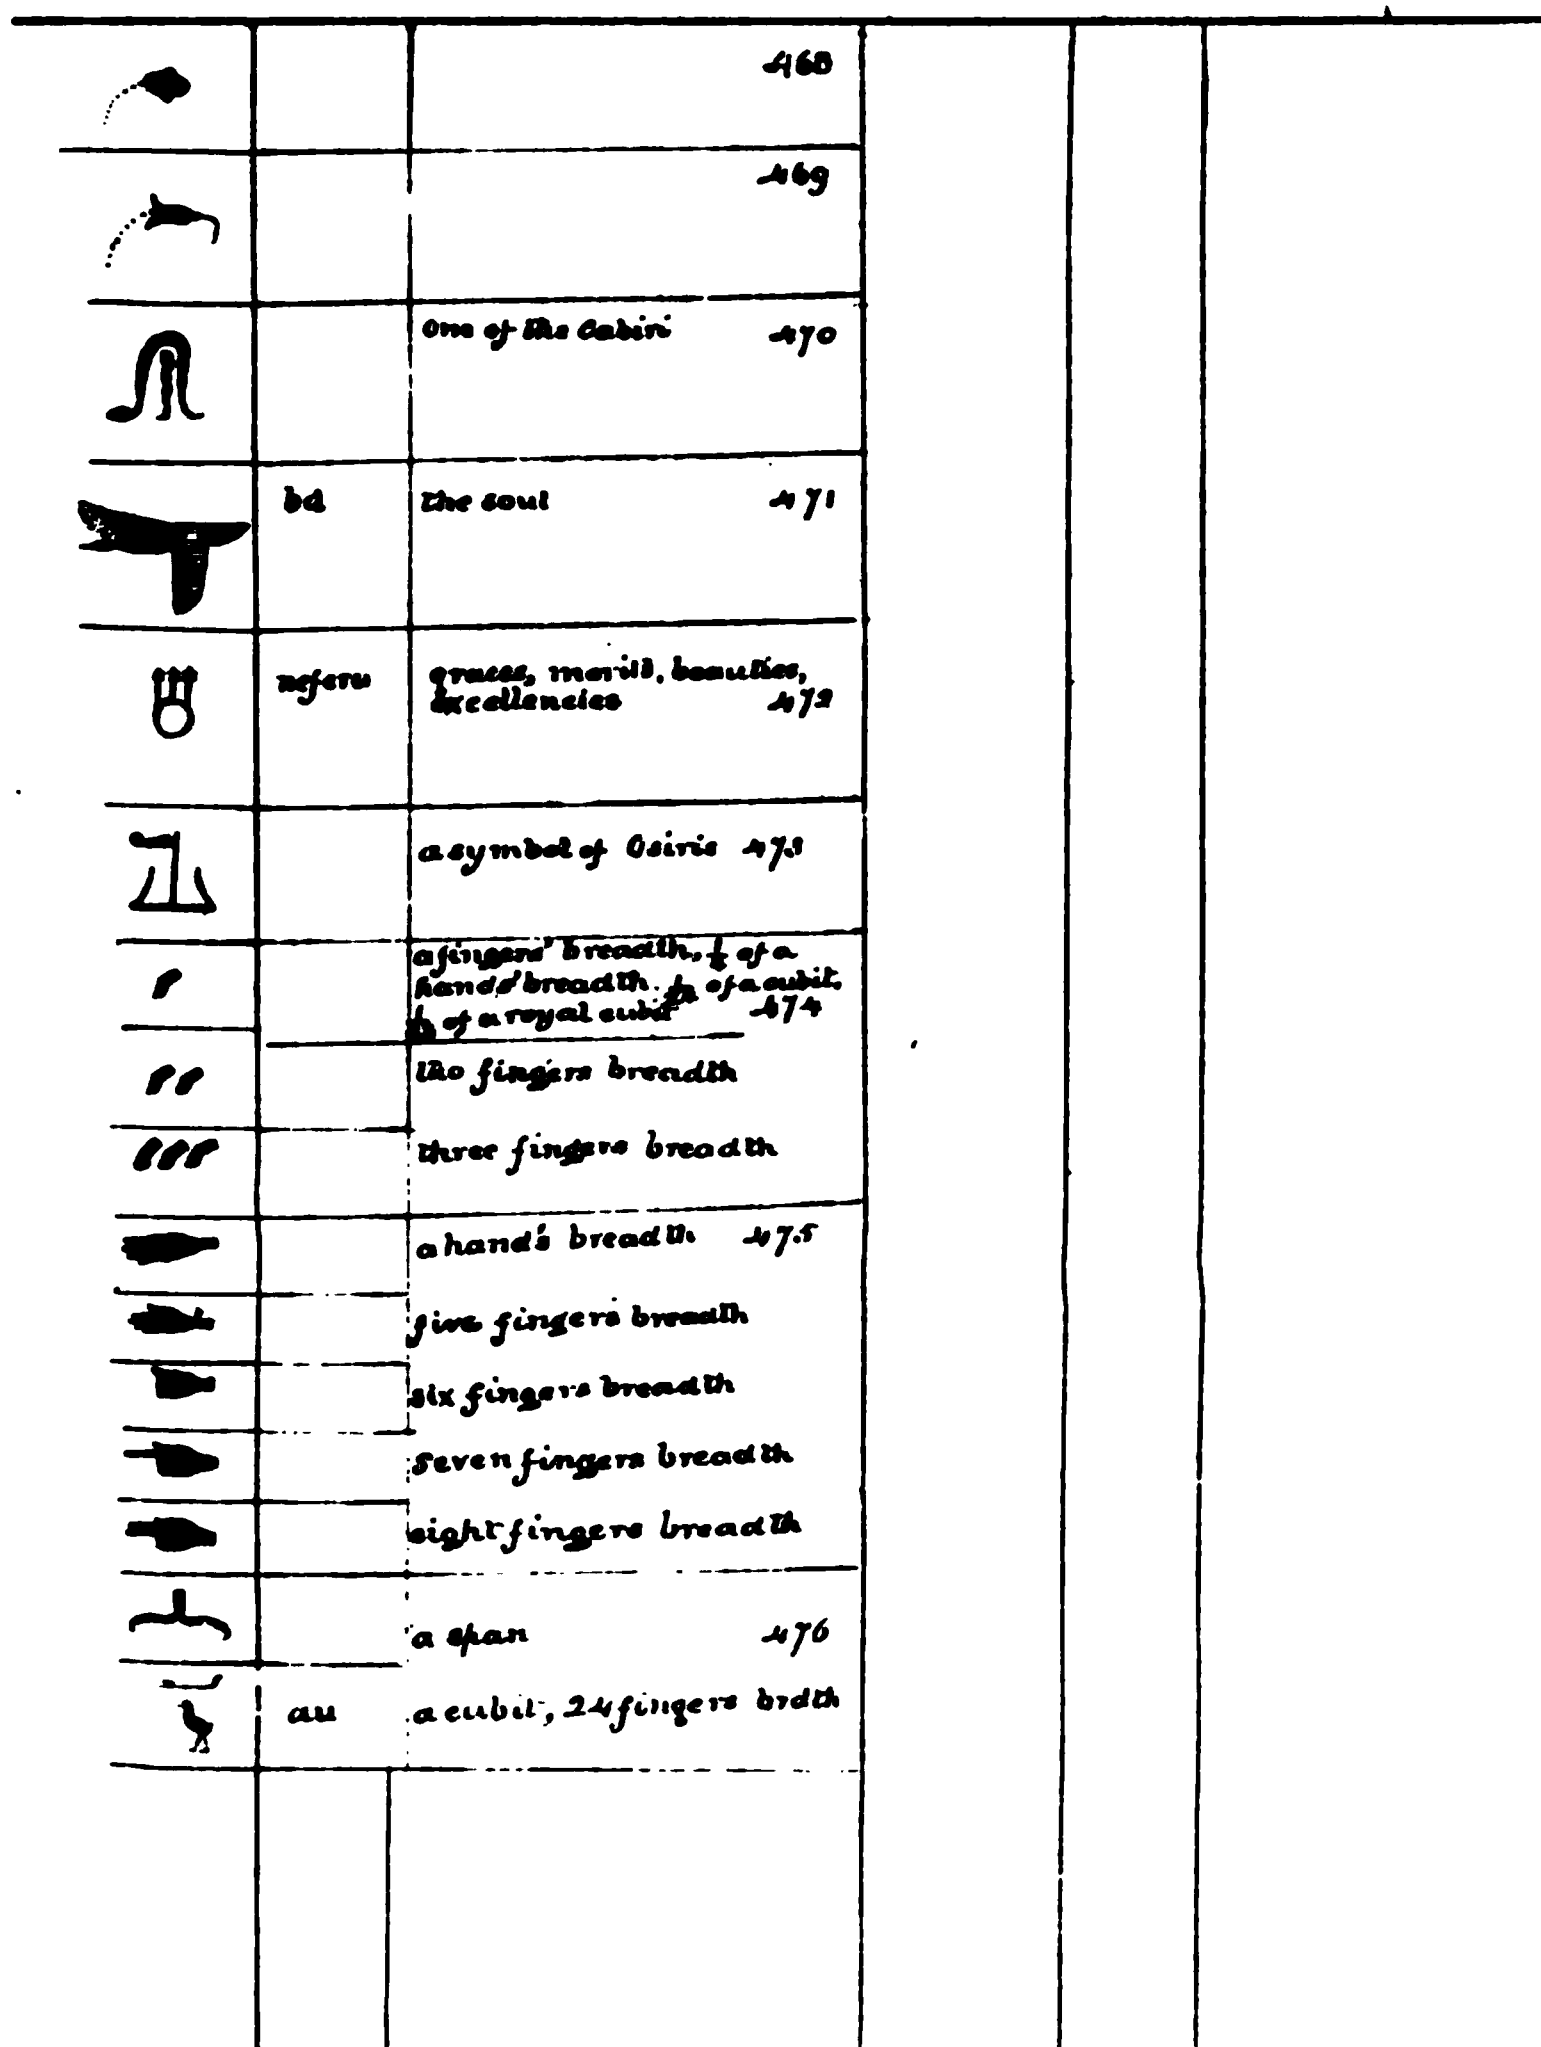 468
469
One of the Cabiri 470
ba the soul 471
neferu graces, merits, beauties,
excellencies 472
a symbol of Osiris 473
a fingers' breadth, of a
hands' breadth. of a cubit,
of a royal cubit 474
two fingers breadth
three fingers breadth
a hand's breadth 475
five fingers breadth
six fingers breadth
seven fingers breadth
eight fingers breadth
a span 476
au a cubit, 24 fingers brdth